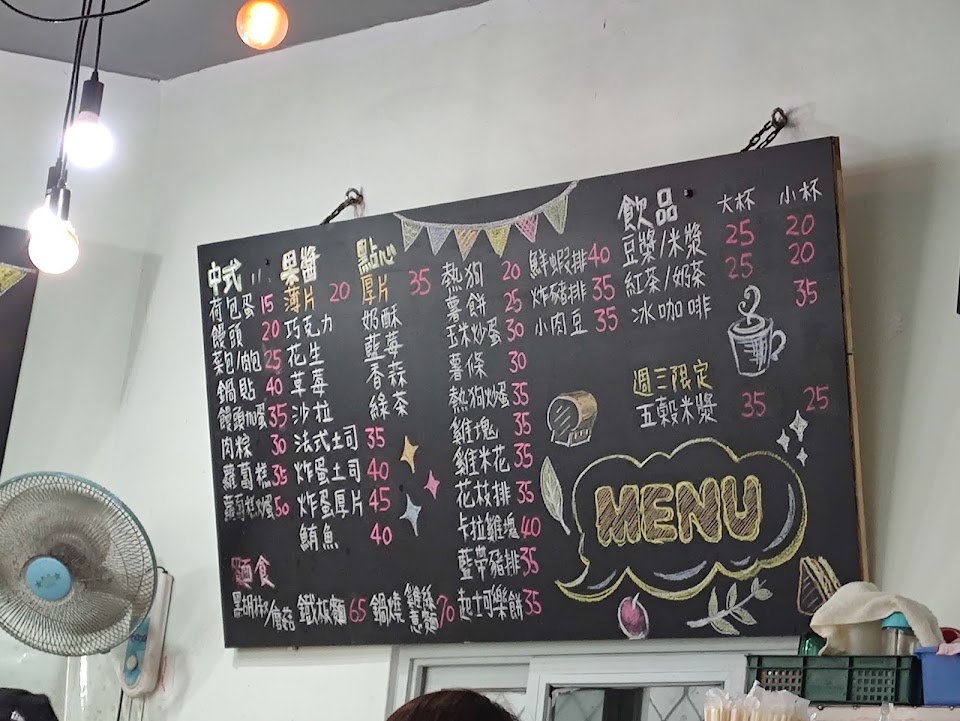 中式
荷包蛋 15
饅頭 20
菜包/肉包 25
鍋貼 40
饅頭加蛋 35
肉粽 30
蘿蔔糕 35
蘿蔔糕炒蛋 50
果醬
薄片 20 厚片 35
巧克力 奶酥
花生 藍莓
草莓 香蒜
沙拉 綠茶
法式土司 35
炸蛋土司 40
炸蛋厚片 45
鮪魚 40
點心
熱狗 20
薯餅 25
玉米炒蛋 30
薯條 30
熱狗炒蛋 35
雞塊 35
雞米花 35
花枝排 35
卡拉雞塊 40
藍帶豬排 35
起士可樂餅 35
鮮蝦排 40
炸豬排 35
小肉豆 35
飲品 大杯 小杯
豆漿/米漿 25 20
紅茶/奶茶 25 20
冰咖啡 35
週三限定
五穀米漿 35 25
MENU
麵食
黑胡椒/蘑菇 鐵板麵 65 鍋燒 意麵 70